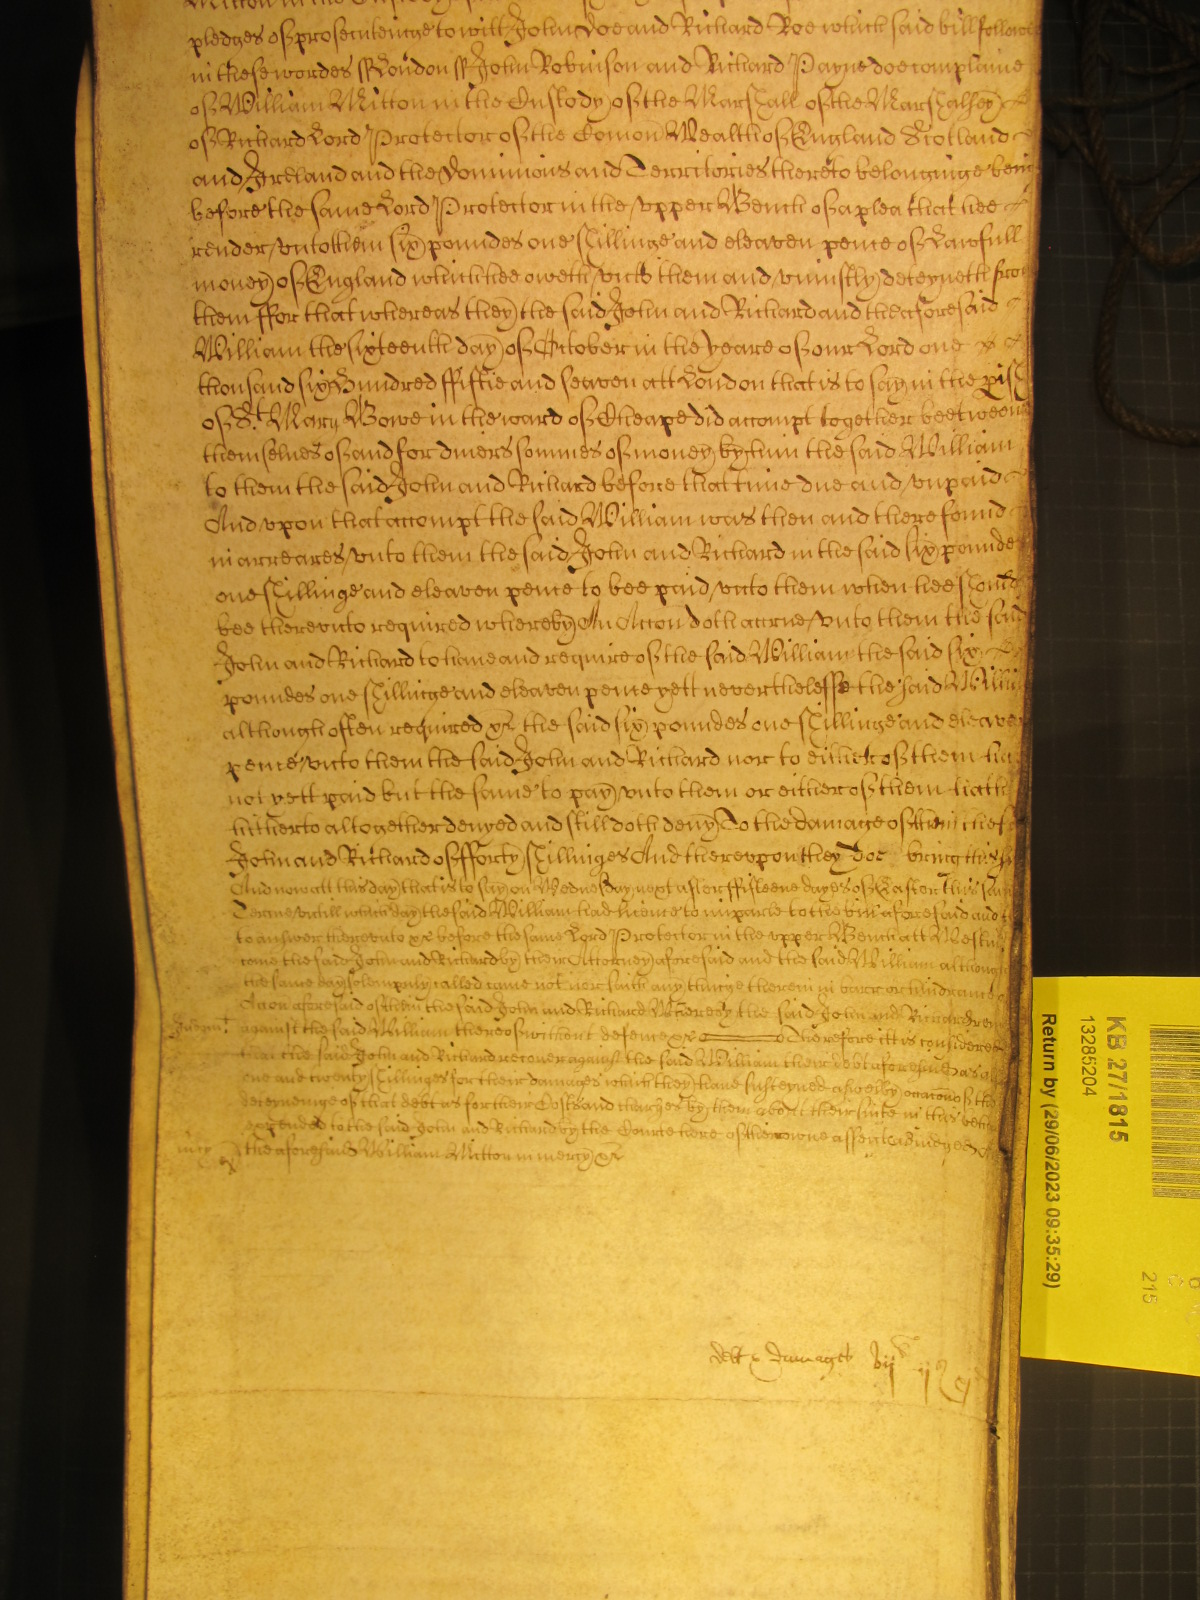 pledges of prosecutinge to witt John Doe and Richard Roe which said bill followe
in these wordes ss London ss John Robinson and Richard Payne doe complaine
of William Mitton in the Custody of the Marshall of the Marshalsey
of Richard Lord Protector of the Comon Wealth of England Scotland
and Ireland and the Dominions and Territories thereto belonginge bein
before the same Lord Protector in the vpper Bench of a plea that hee
render vnto them six poundes one shillinge and eleaven pence of Lawfull
money of England which hee oweth vnto them and vniustly deteyneth from
them ffor that whereas they the said John and Richard and the aforesaid
William the sixteenth day of October in the yeare of our Lord one
thousand six hundred ffiftie and seaven att London that is to say in the pish
of St Mary Bowe in the ward of Cheape did accompt together beetweene
themselues of and for diuers sommes of money by him the said William
to them the said John and Richard before that time due and vnpaid
And vpon that accompt the said William was then and there found
in arreares vnto them the said John and Richard in the said six pounde
one shillinge and eleaven pence to bee paid vnto them when hee should
bee therevnto required whereby An Accon doth accrue vnto them the said
John and Richard to haue and require of the said William the said six
poundes one shillinge and eleaven pence yett neverthelesse the said Willi
although often required xc the said six poundes one shillinge and eleaven
pence vnto them the said John and Richard nor to either of them hat
not yett paid but the same to pay vnto them or either of them hath
hitherto altogether denyed and still doth deny To the damage of them the
John and Richard of fforty shillinges And therevpon they doe bring this
And now att this day that is to say on Wednesday next after ffifteene dayes of Easter this same
Terme vntill which day the said William had licence to imparle to the bill aforesaid and
to answer therevnto xc before the same Lord Protector in the vpper Bench att Westm
come the said John and Richard by their Attorney aforesaid and the said William although
the same day solempnly called came not nor saith any thinge therein in barr or hindrance
Accon aforesaid of them the said John and Richard Whereby the said John and Richard rem
Judgmt
against the said William thereof without defence xc Therefore itt is considered
that the said John and Richard recouer against the said William their debt aforesaid as al
one and twenty shillinges for their damages which they haue susteyned aswell by occacon of the
deteyninge of that debt as for their Costs and charges by them about their suite in this behal
expended to the said John and Richard by the Courte here of their owne assent adiudged
mcy
the aforesaid William Mitton in mercy xc
debt & damages vijli ijs xjd
KB 27/1815
13285204
Return by (29/06/2023 09:35:29)
215